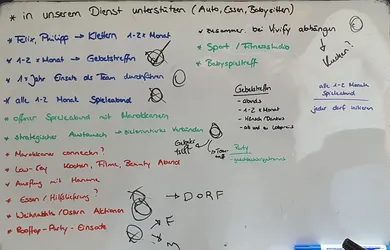 * in unserem Dienst unterstützen (Auto, Essen, Babysitten)
* Felix, Philipp → Klettern 1-2 x Monat
* 1-2 x Monat → Gebetstreffen
* 1 x Jahr Einsatz als Team durchführen
* alle 1-2 Monat Spieleabend
* offener Spieleabend mit Marokkanern
* strategischer Austausch →
* Marokkaner connecten?
* Low-key Kochen, Filme, Beauty Abend
* Ausflug mit
* Essen / Hilfslieferung?
* Weihnachts/Ostern Aktionen
* Rooftop-Party-Einsatz
→ DORF
→ F
→ M
* zusammen bei Vivify abhängen
* Sport / Fitnessstudio
* Babyspieltreff
Kosten?
Gebetstreffen
- abends
- 1-2 x Monat
- ab und zu Lobpreis
Party
alle 1-2 Monat
Spieleabend
jeder darf wissen